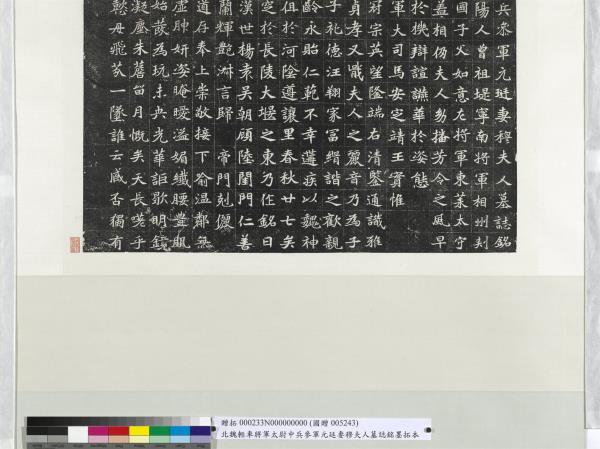 兵叅軍元珽妻穆夫人墓誌銘
陽人曾祖堤寧南將軍相州刾
國子父如意左將軍東萊太守
蓋相仍夫人幼播芳令之風早
於機辯諠讌華於姿態
軍大司馬安定靖王寶惟
府宗英望隆端右清鑒通識雅
貞孝又戢夫人之嚴音乃為子
子礼德汪翔家富緝諧之歡親
齡永貽仁範不幸遘疾以魏神
俎於河陰遵讓里春秋廿七矣
窆於長陵大堰之東乃作銘曰
漢世楊袁吴朝顧陸閨門仁善
蘭輝艷淋言歸 帝門剋儷
道存奉上崇敬接下
妍姿晻曖溢媚纖腰豊肌
為玩未央光華詎歌明鏡
凝塵朱 月慨矣天長嗟乎
飛 一墜誰云 否獨有
贈拓 000233N000000000 (國贈 005243)
北魏輕車將軍太尉中兵參軍元珽妻穆夫人墓誌銘墨拓本